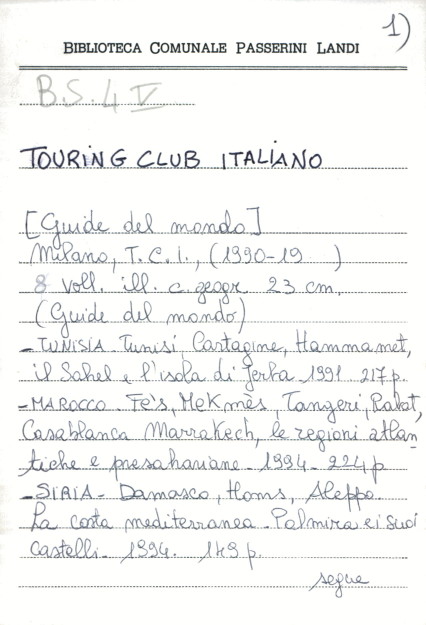 1)
BIBLIOTECA COMUNALE PASSERINI LANDI
B.S. 4 V
TOURING CLUB ITALIANO
[Guide del mondo]
Milano, T.C.I., (1990-19 )
8 voll. ill. c. geogr 23 cm.
(Guide del mondo)
- TUNISIA Tunisi, Cartagine, Hammamet,
il Sahel e l'isola di Jerba 1991 217 p.
- MAROCCO. Fès, Mekmès, Tangeri, Rabat,
Casablanca Marrakech, le regioni atlan
tiche e presahariane - 1994 - 224 p
- SIRIA - Damasco, Homs, Aleppo.
La costa mediterranea - Palmira e i suoi
castelli - 1994. 149 p.
segue